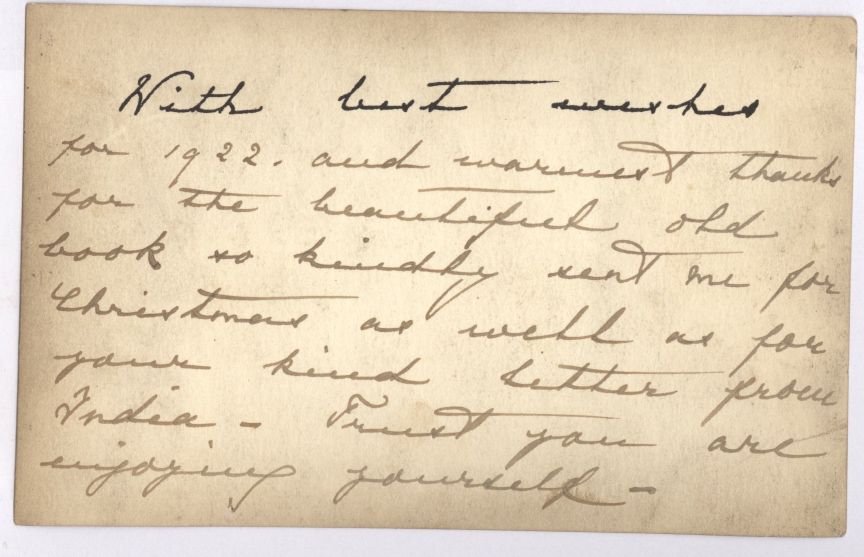 With best wishes
for 1922. and warmest thanks
for the beautiful old
book so kindly sent me for
Christmas as well as for
your kind letter from
India - Trust you are
enjoying yourself -